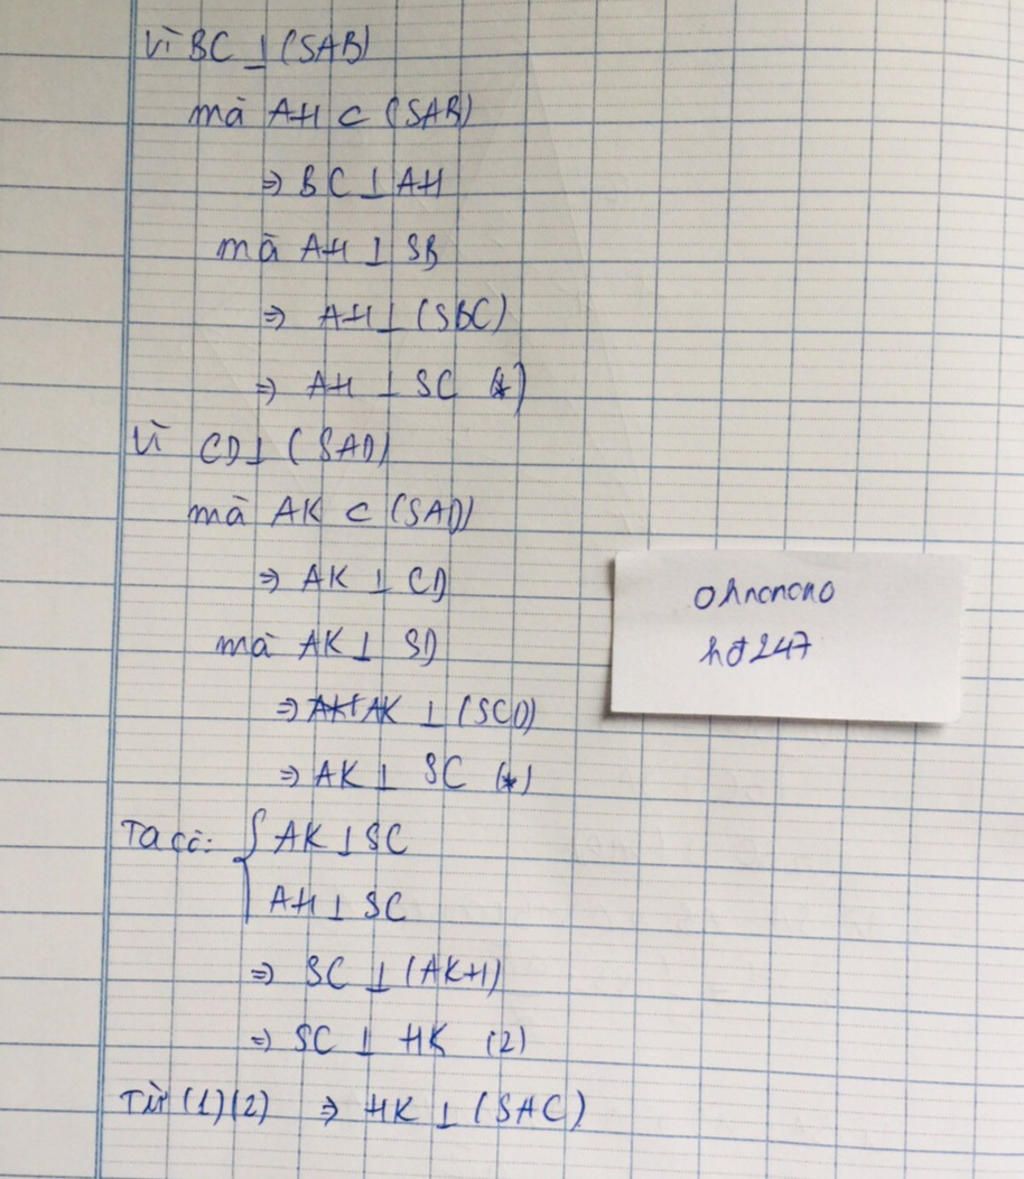 Vì BC ⊥ (SAB)
mà AH ⊂ (SAB)
⇒ BC ⊥ AH
mà AH ⊥ SB
⇒ AH ⊥ (SBC)
⇒ AH ⊥ SC (*)
Vì CD ⊥ (SAD)
mà AK ⊂ (SAD)
⇒ AK ⊥ CD
mà AK ⊥ SD
⇒ AK ⊥ (SCD)
⇒ AK ⊥ SC (*)
Ta có: { AK ⊥ SC
AH ⊥ SC
⇒ SC ⊥ (AKH)
⇒ SC ⊥ HK (2)
Từ (1)(2) ⇒ HK ⊥ (SAC)
ohnonono
hđ247